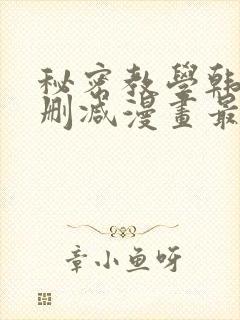 秘密教學韩
删减漫畫最
章小鱼呀